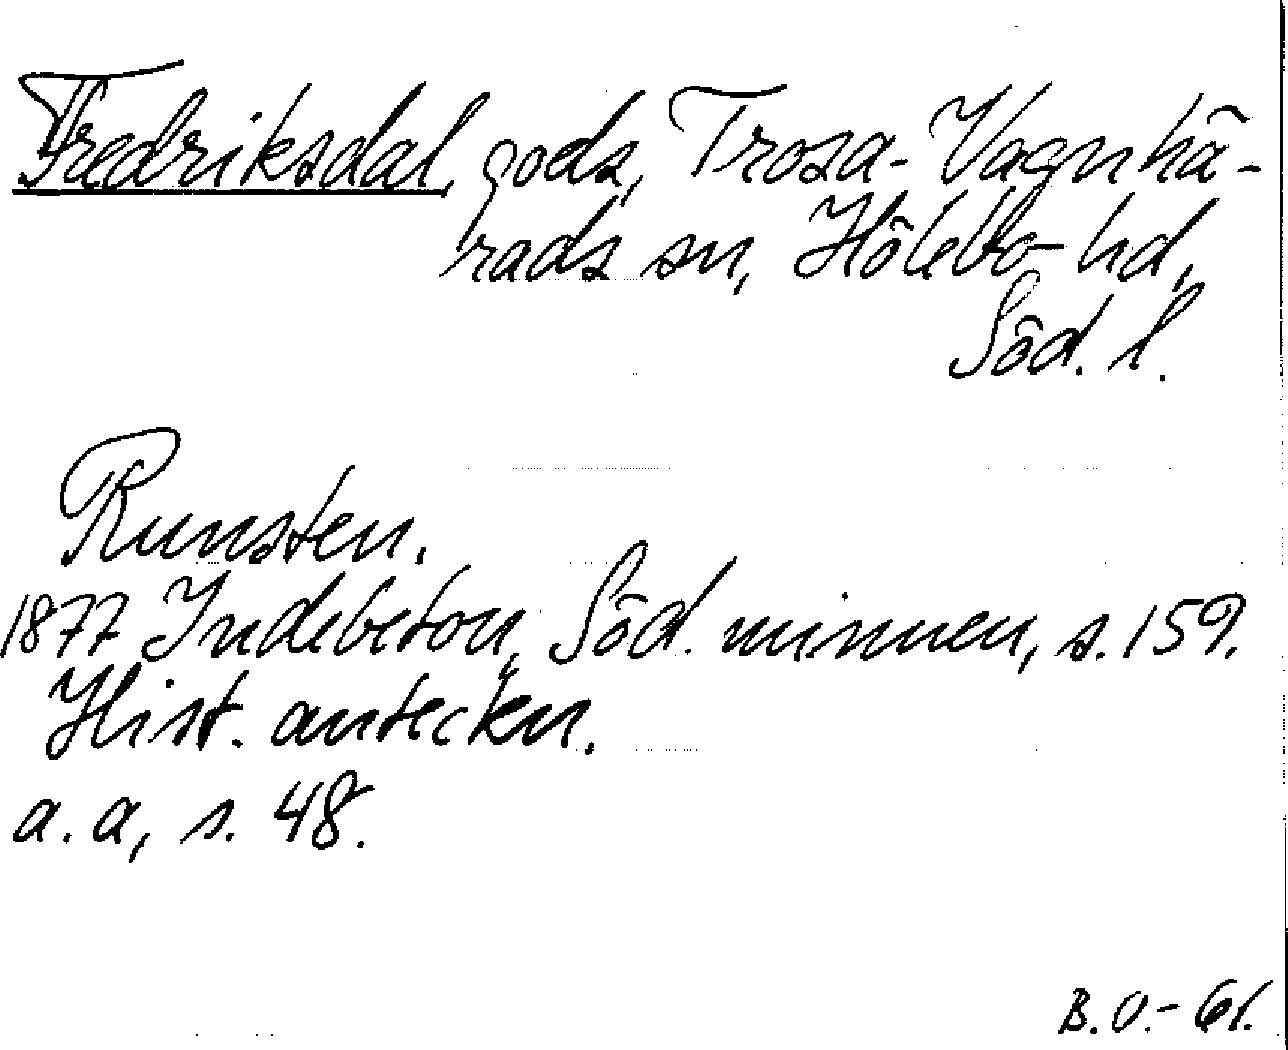 Fredriksdal, gods, Trosa-Vagnhä-
rads sn, Hölebo hd,
Söd. l.
Runsten.
1877 Indebetou, Söd. minnen, s. 159.
Hist. anteckn.
a. a, s. 48.
B. O. - 61.